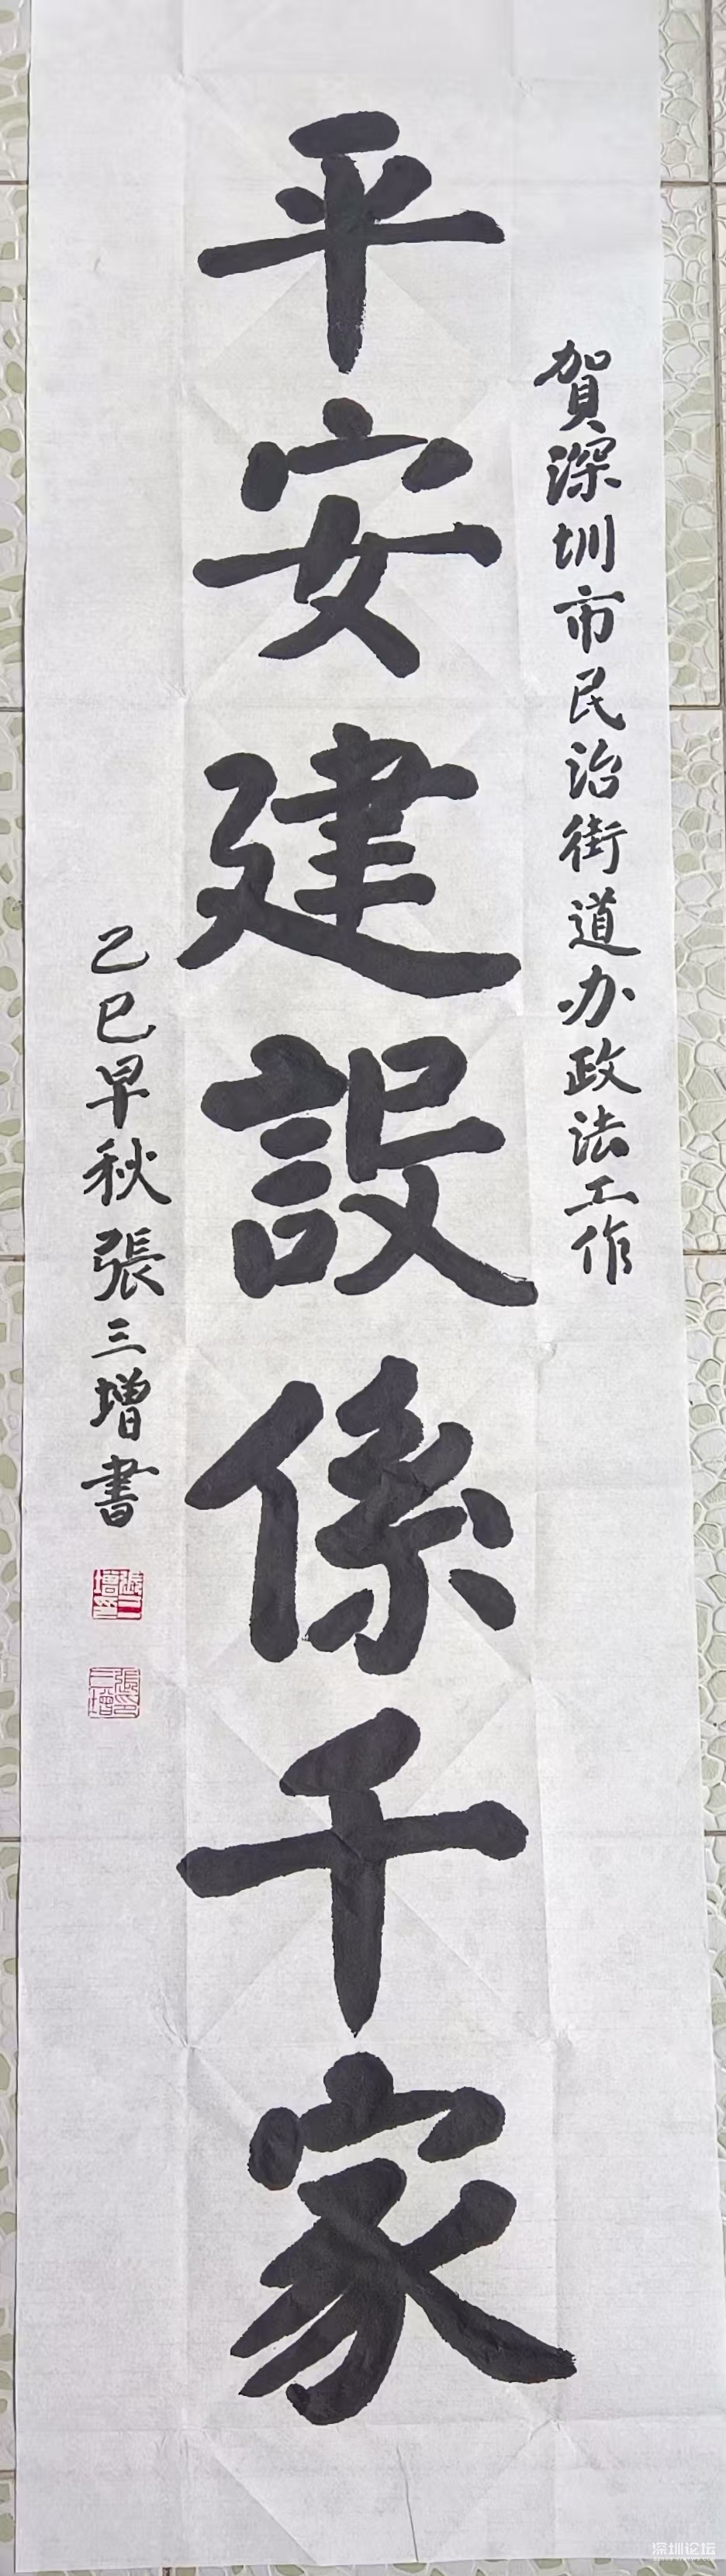 賀深圳市民治街道办政法工作
平安建設係千家
乙巳早秋張三增書
張三增印
張三增印
深圳论坛